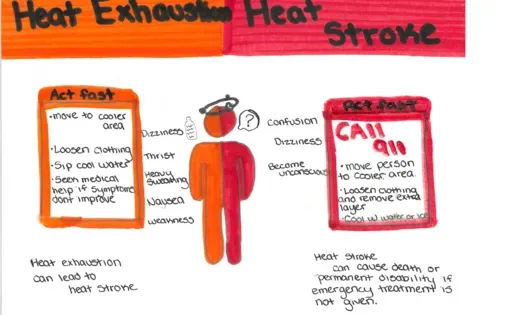 Heat Exhaustion
Heat
Stroke
Act fast
•move to cooler
area
•Loosen clothing
•Sip cool water
•Seek medical
help if symptoms
dont improve
Dizziness
Thrist
Heavy
sweating
Nausea
Weakness
?
Confusion
Dizziness
Become
unconscious
Act fast
CAll
911
•move person
to cooler area.
•Loosen clothing
and remove extra
layer
•Cool w/ water or ice
Heat exhaustion
can lead to
heat stroke.
Heat stroke
can cause death or
permanent disability if
emergency treatment is
not given.